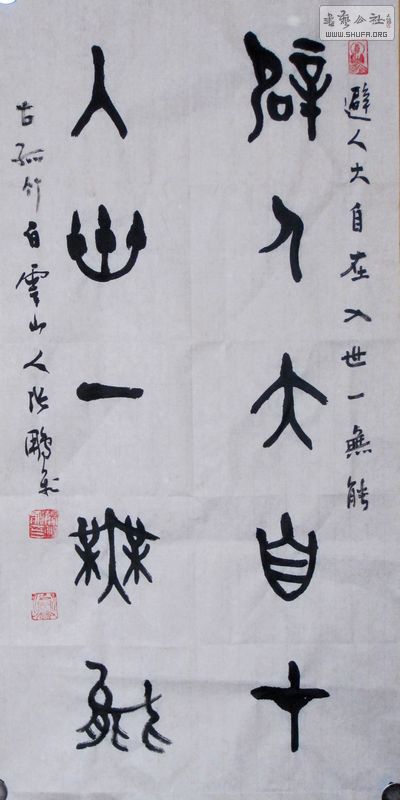 書藝公社
WWW.SHUFA.ORG
避人大自在入世一無能
辟人大自才
入世一無能
古孤竹白雲山人張鵬